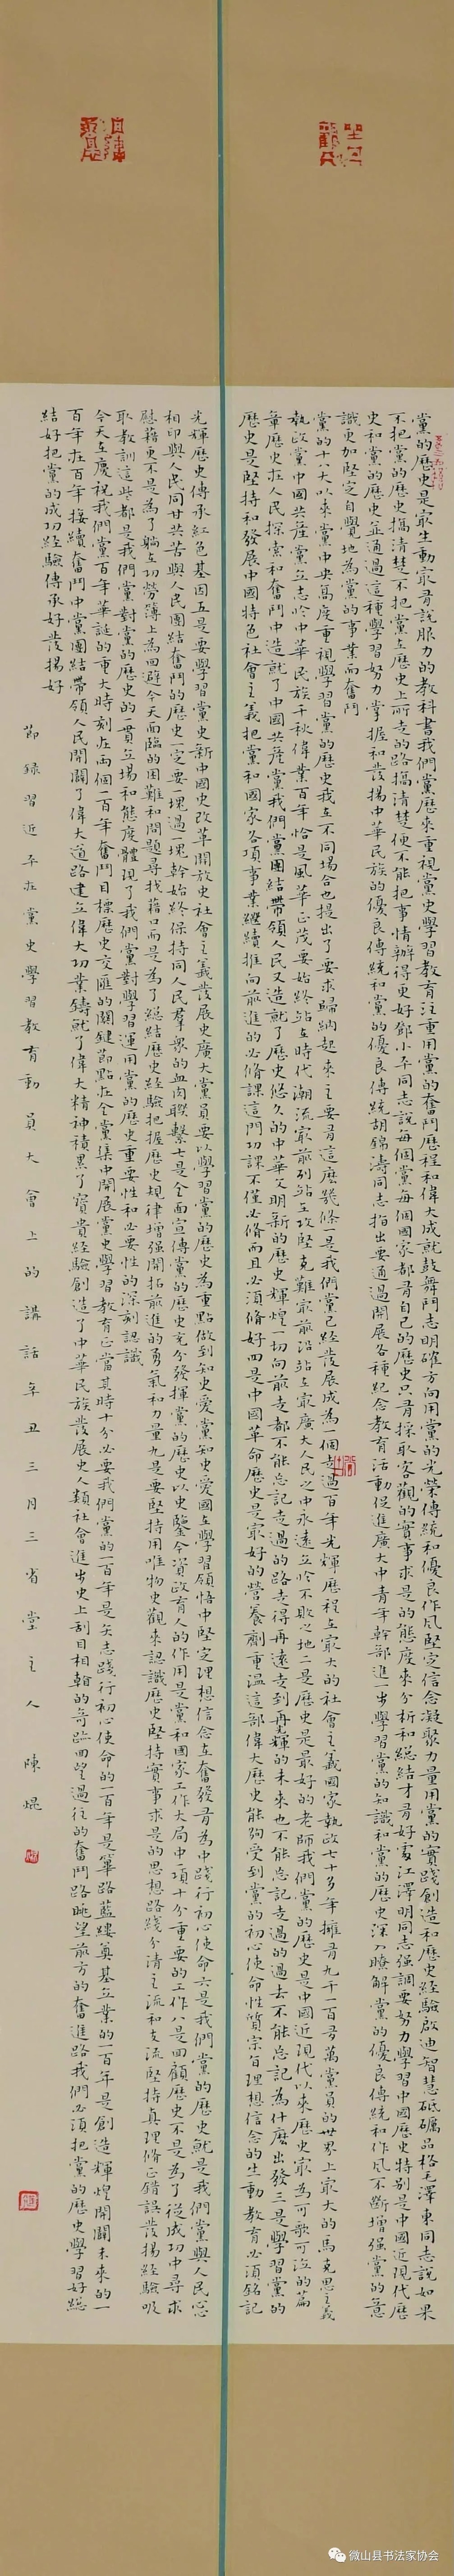 黨的歷史是最生動最有說服力的教科書我們黨歷來重視黨史學習教育注重用黨的奮鬥歷程和偉大成就鼓舞鬥志明確方向用黨的光榮傳統和優良作風堅定信念凝聚力量用黨的實踐創造和歷史經驗啟迪智慧砥礪品格毛澤東同志說如果
不把黨的歷史搞清楚不把黨在歷史上所走的路搞清楚便不能把事情辦得更好鄧小平同志說每個黨每個國家都有自己的歷史只有採取客觀的實事求是的態度來分析和總結才有好處江澤明同志強調要努力學習中國歷史特別是中國近現代歷
史和黨的歷史並通過這種學習努力掌握和發揚中華民族的優良傳統和黨的優良傳統胡錦濤同志指出要通過開展各種紀念教育活動促進廣大中青年幹部進一步學習黨的知識和黨的歷史深入瞭解黨的優良傳統和作風不斷增強黨的意
識更加堅定自覺地為黨的事業而奮鬥
黨的十八大以來黨中央高度重視學習黨的歷史我在不同場合也提出了要求歸納起來主要有這麼幾條一是我們黨已經發展成為一個走過百年光輝歷程在最大的社會主義國家執政七十多年擁有九千一百多萬黨員的世界上最大的馬克思主義
執政黨中國共產黨立志於中華民族千秋偉業百年恰是風華正茂要始終站在時代潮流最前列站在攻堅克難最前沿站在最廣大人民之中永遠立於不敗之地二是歷史是最好的老師我們黨的歷史是中國近現代以來歷史最為可歌可泣的篇
章歷史在人民探索和奮鬥中造就了中國共產黨我們黨團結帶領人民又造就了歷史悠久的中華文明新的歷史輝煌一切向前走都不能忘記走過的路走得再遠走到再光輝的未來也不能忘記走過的過去不能忘記為什麼出發三是學習黨的
歷史是堅持和發展中國特色社會主義把黨和國家各項事業繼續推向前進的必修課這門功課不僅必修而且必須修好四是中國革命歷史是最好的營養劑重溫這部偉大歷史能夠受到黨的初心使命性質宗旨理想信念的生動教育必須銘記
光輝歷史傳承紅色基因五是要學習黨史新中國史改革開放史社會主義發展史廣大黨員要以學習黨的歷史為重點做到知史愛黨知史愛國在學習領悟中堅定理想信念在奮發有為中踐行初心使命六是我們黨的歷史就是我們黨與人民心心
相印與人民同甘共苦與人民團結奮鬥的歷史一定要一塊過一塊幹始終保持同人民羣眾的血肉聯繫七是全面宣傳黨的歷史充分發揮黨的歷史以史鑒今資政育人的作用是黨和國家工作大局中一項十分重要的工作八是回顧歷史不是為了從成功中尋求
慰藉更不是為了躺在功勞簿上為回避今天面臨的困難和問題尋找藉口而是為了總結歷史經驗把握歷史規律增強開拓前進的勇氣和力量九是要堅持用唯物史觀來認識歷史堅持實事求是的思想路線分清主流和支流堅持真理修正錯誤發揚經驗吸
取教訓這些都是我們黨對黨的歷史的一貫立場和態度體現了我們黨對學習運用黨的歷史重要性和必要性的深刻認識
今天在慶祝我們黨百年華誕的重大時刻在兩個一百年奮鬥目標歷史交匯的關鍵節點在全黨集中開展黨史學習教育正當其時十分必要我們黨的一百年是矢志踐行初心使命的一百年是篳路藍縷奠基立業的一百年是創造輝煌開闢未來的一
百年在百年接續奮鬥中黨團結帶領人民開闢了偉大道路建立偉大功業鑄就了偉大精神積累了寶貴經驗創造了中華民族發展史人類社會進步史上刮目相翰的奇跡回望過往的奮鬥路眺望前方的奮進路我們必須把黨的歷史學習好總
結好把黨的成功經驗傳承好發揚好
節錄習近平在黨史學習教育動員大會上的講話辛丑三月三省堂主人陳焜
微山县书法家协会